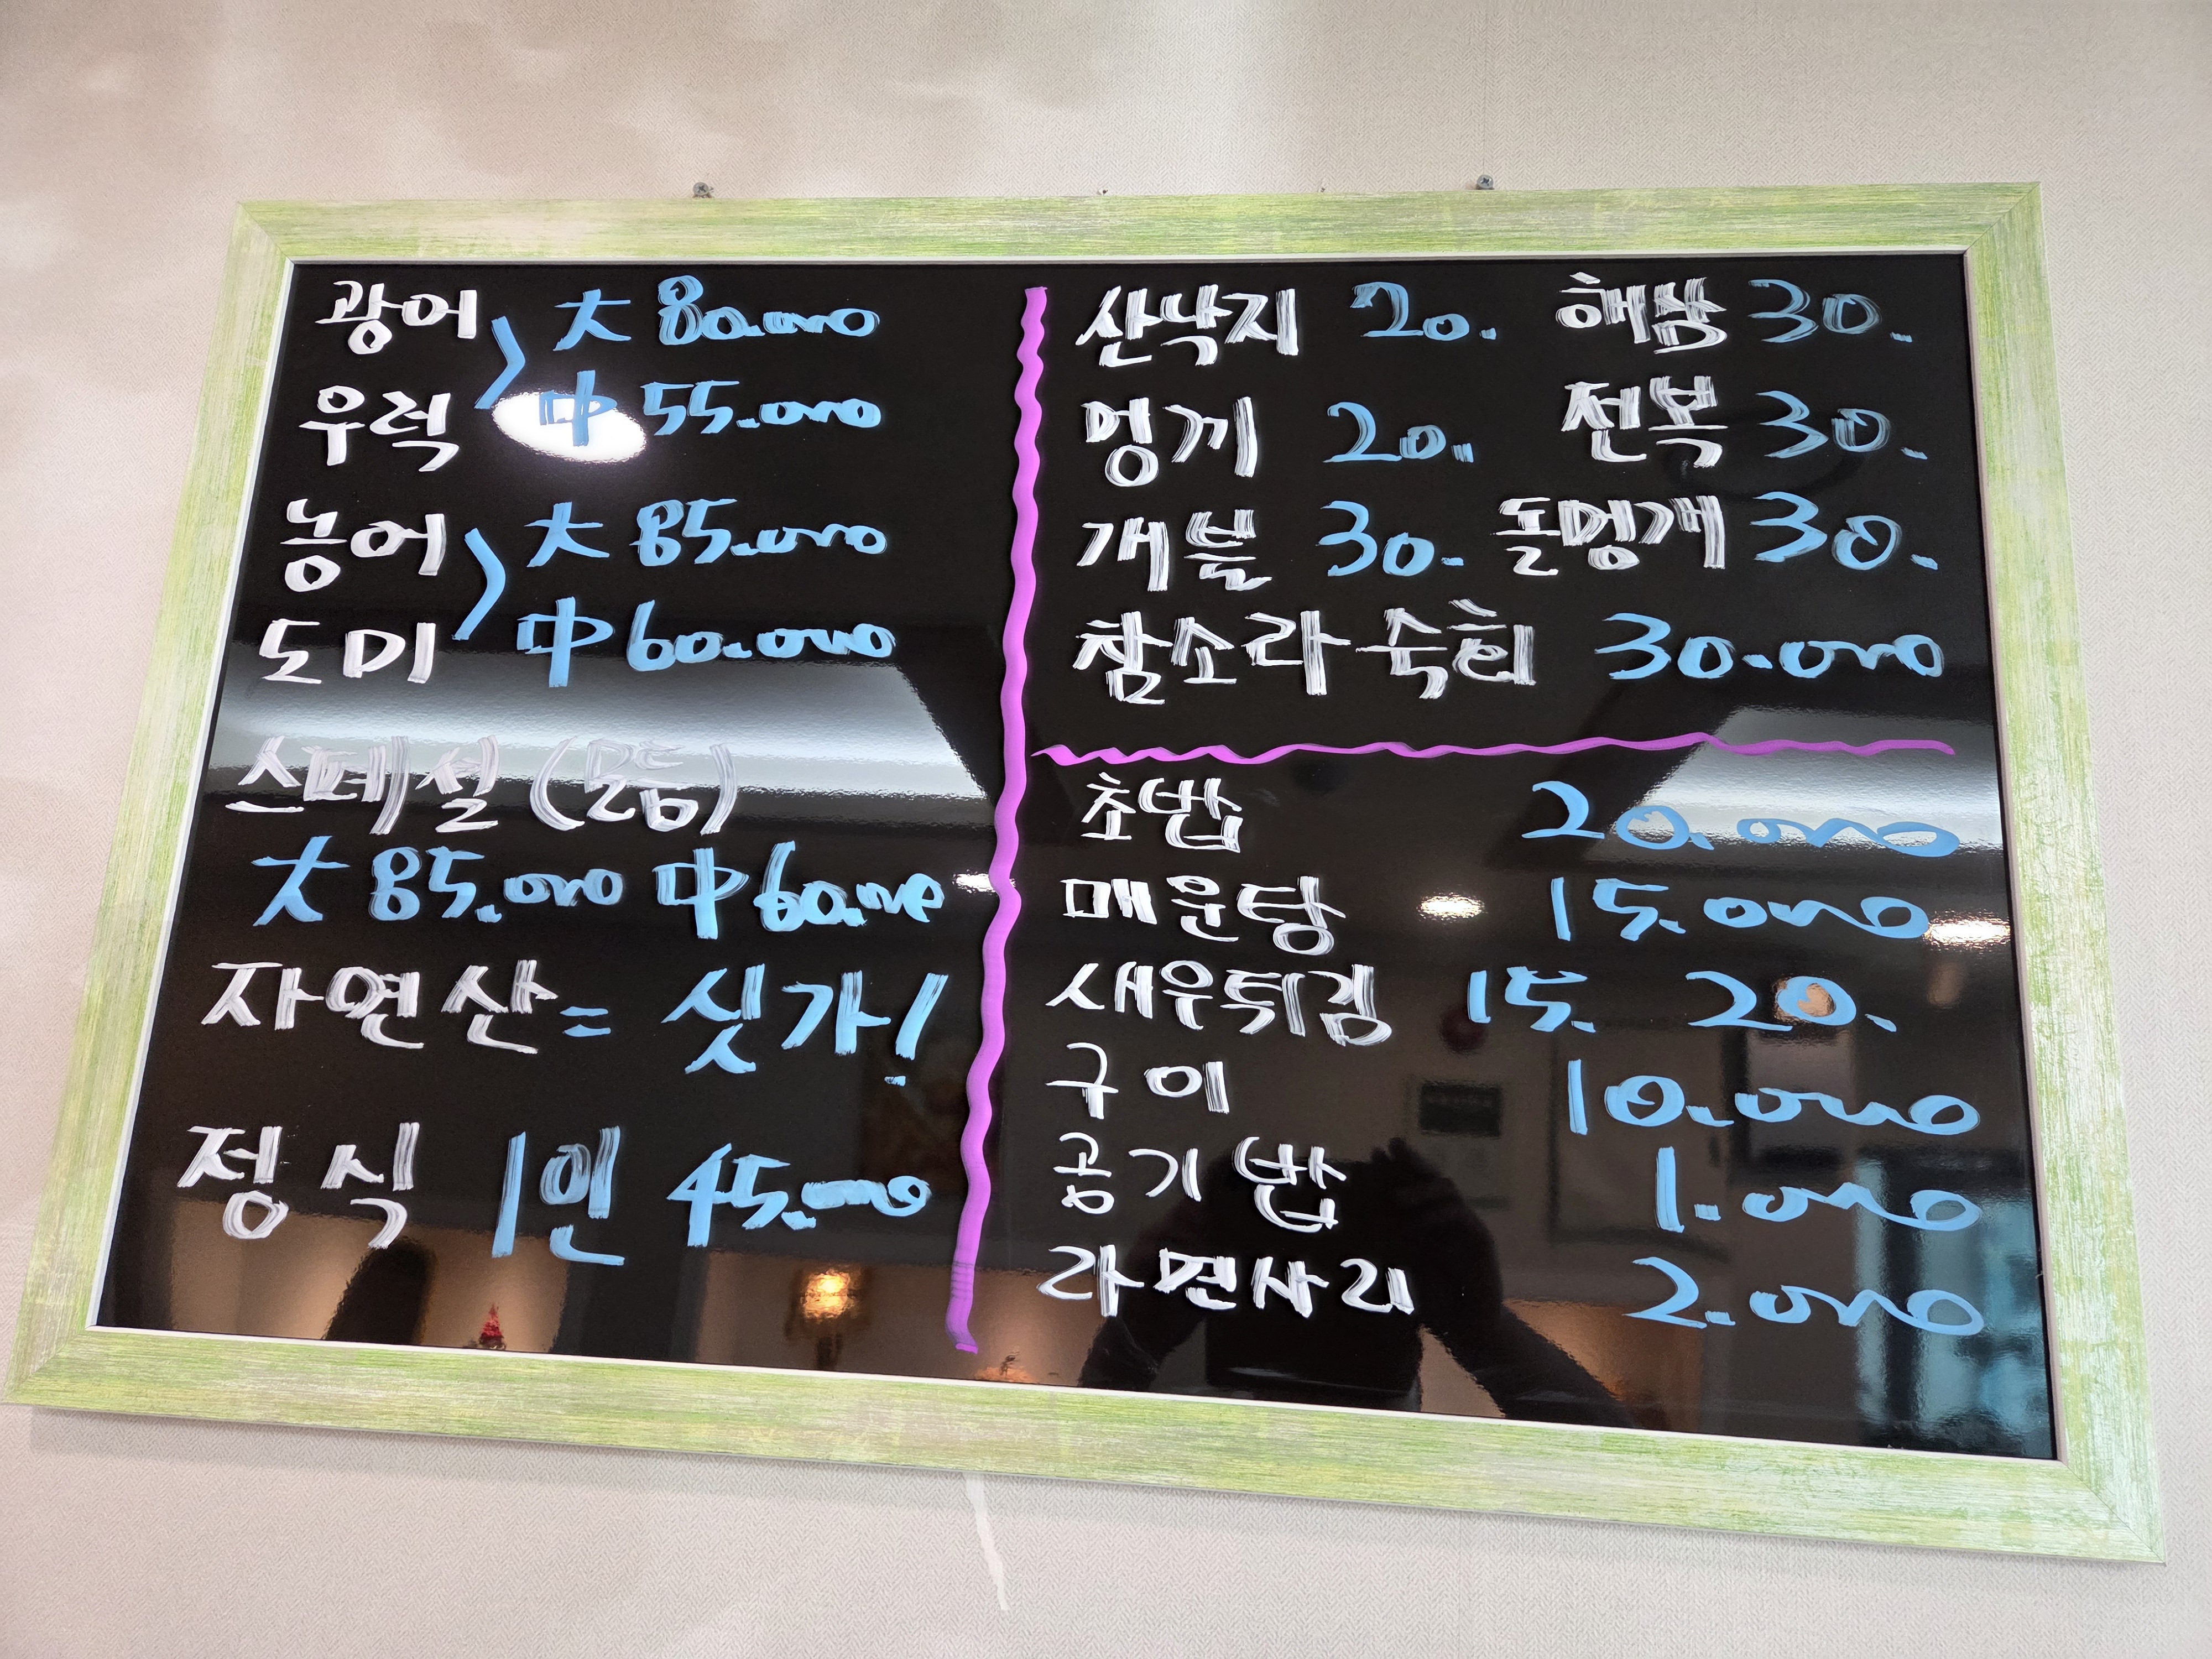 광어 大 80.000
우럭 中 55.000
농어 大 85.000
도미 中 60.000
스페셜 (모듬)
大 85.000 中 60.000
자연산 = 싯가!
정식 1인 45.000
산낙지 20. 해삼 30.
멍게 20. 전복 30.
개불 30. 돌멍게 30.
참소라숙회 30.000
초밥 20.000
매운탕 15.000
새우튀김 15. 20.
구이 10.000
공기밥 1.000
라면사리 2.000